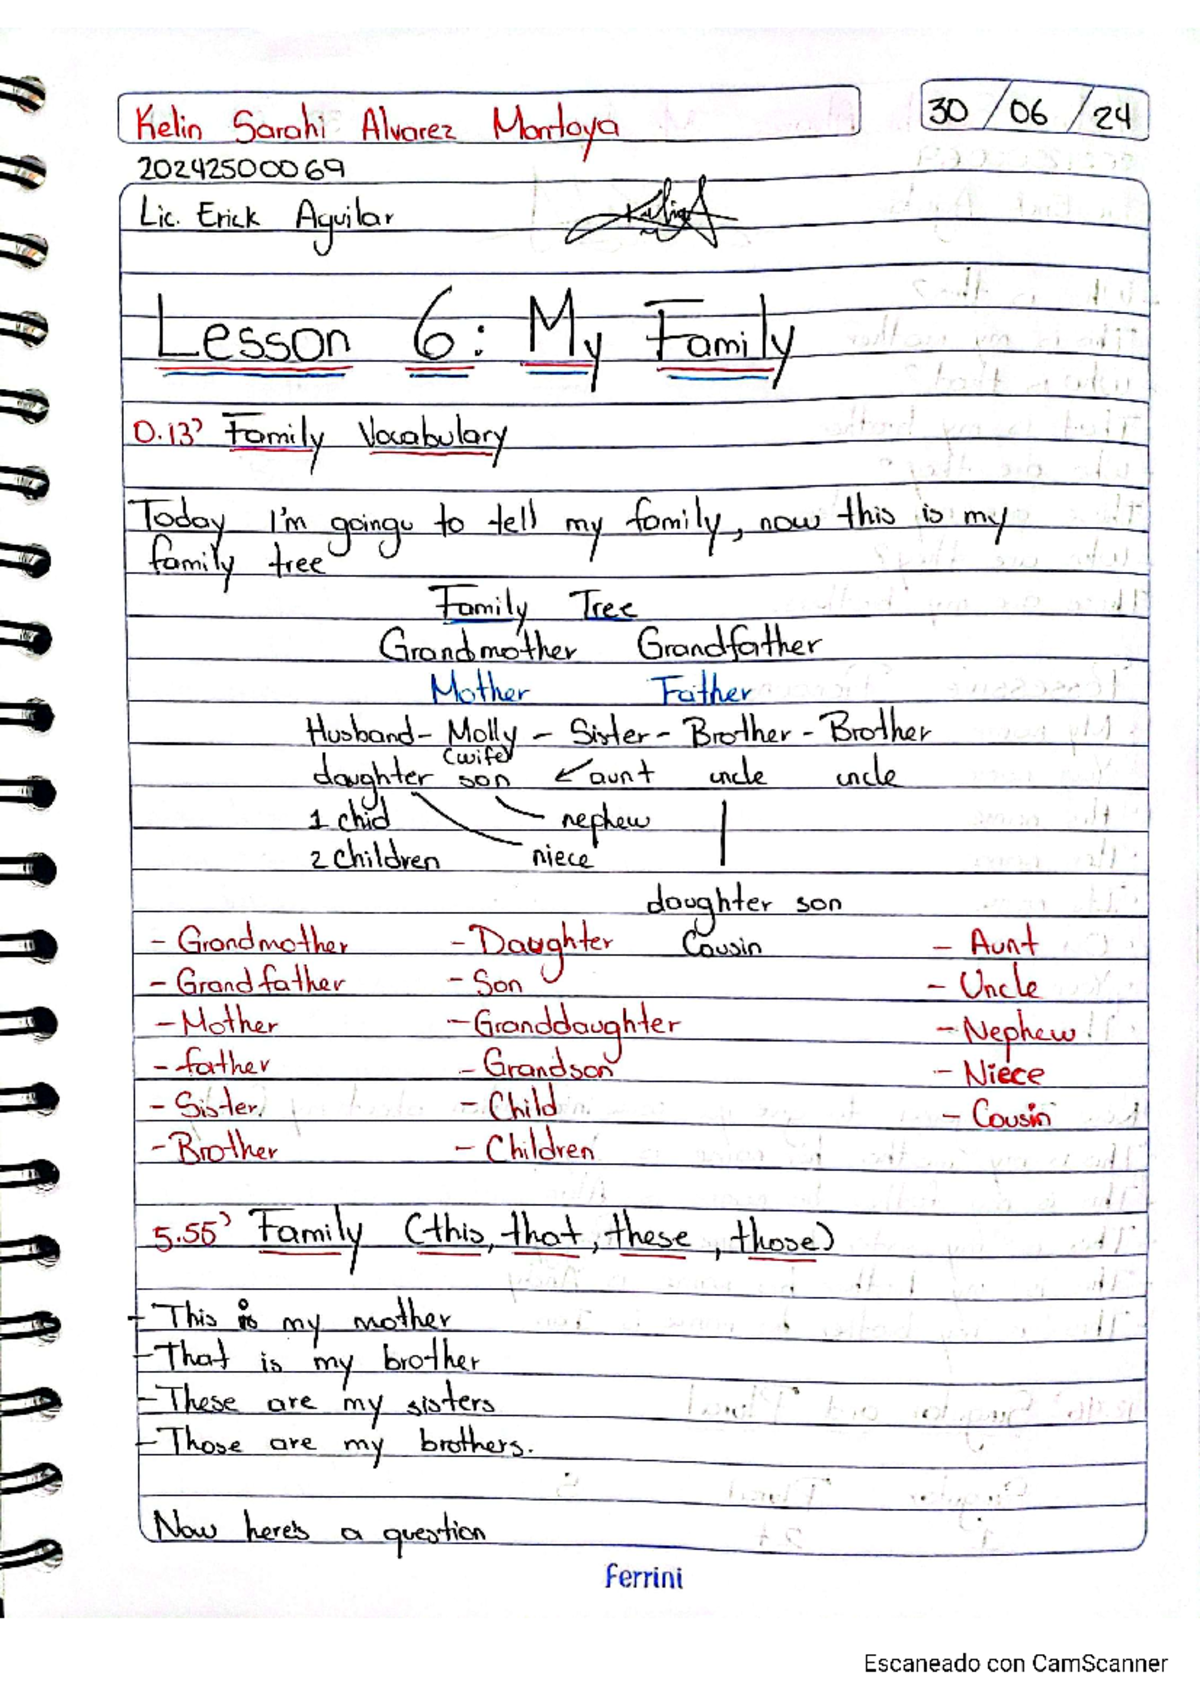 Kelin Sarahi Alvarez Montoya 30/06/24
20242500069
Lic. Erick Aguilar
Lesson 6: My Family
0.13' Family Vocabulary
Today I'm goingu to tell my family, now this is my
family tree
Family Tree
Grandmother Grandfather
Mother Father
Husband - Molly - Sister - Brother - Brother
(wife)
daughter son aunt uncle uncle
1 chid nephew
2 children niece
daughter son
- Grandmother - Daughter Cousin - Aunt
- Grandfather - Son - Uncle
- Mother - Granddaughter - Nephew
- father - Grandson - Niece
- Sister - Child - Cousin
- Brother - Children
5.55' Family (this, that, these, those)
- This is my mother
- That is my brother
- These are my sisters
- Those are my brothers.
Now here's a question
Ferrini
Escaneado con CamScanner